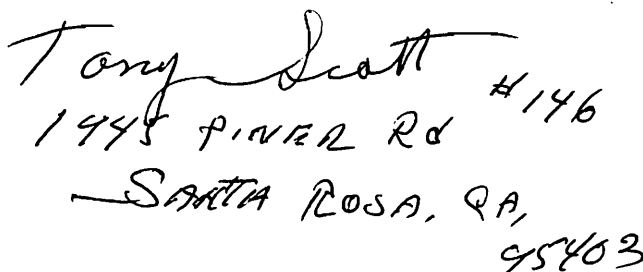 Tony Scott
1945 PINER Rd #146
SANTA ROSA, CA,
95403